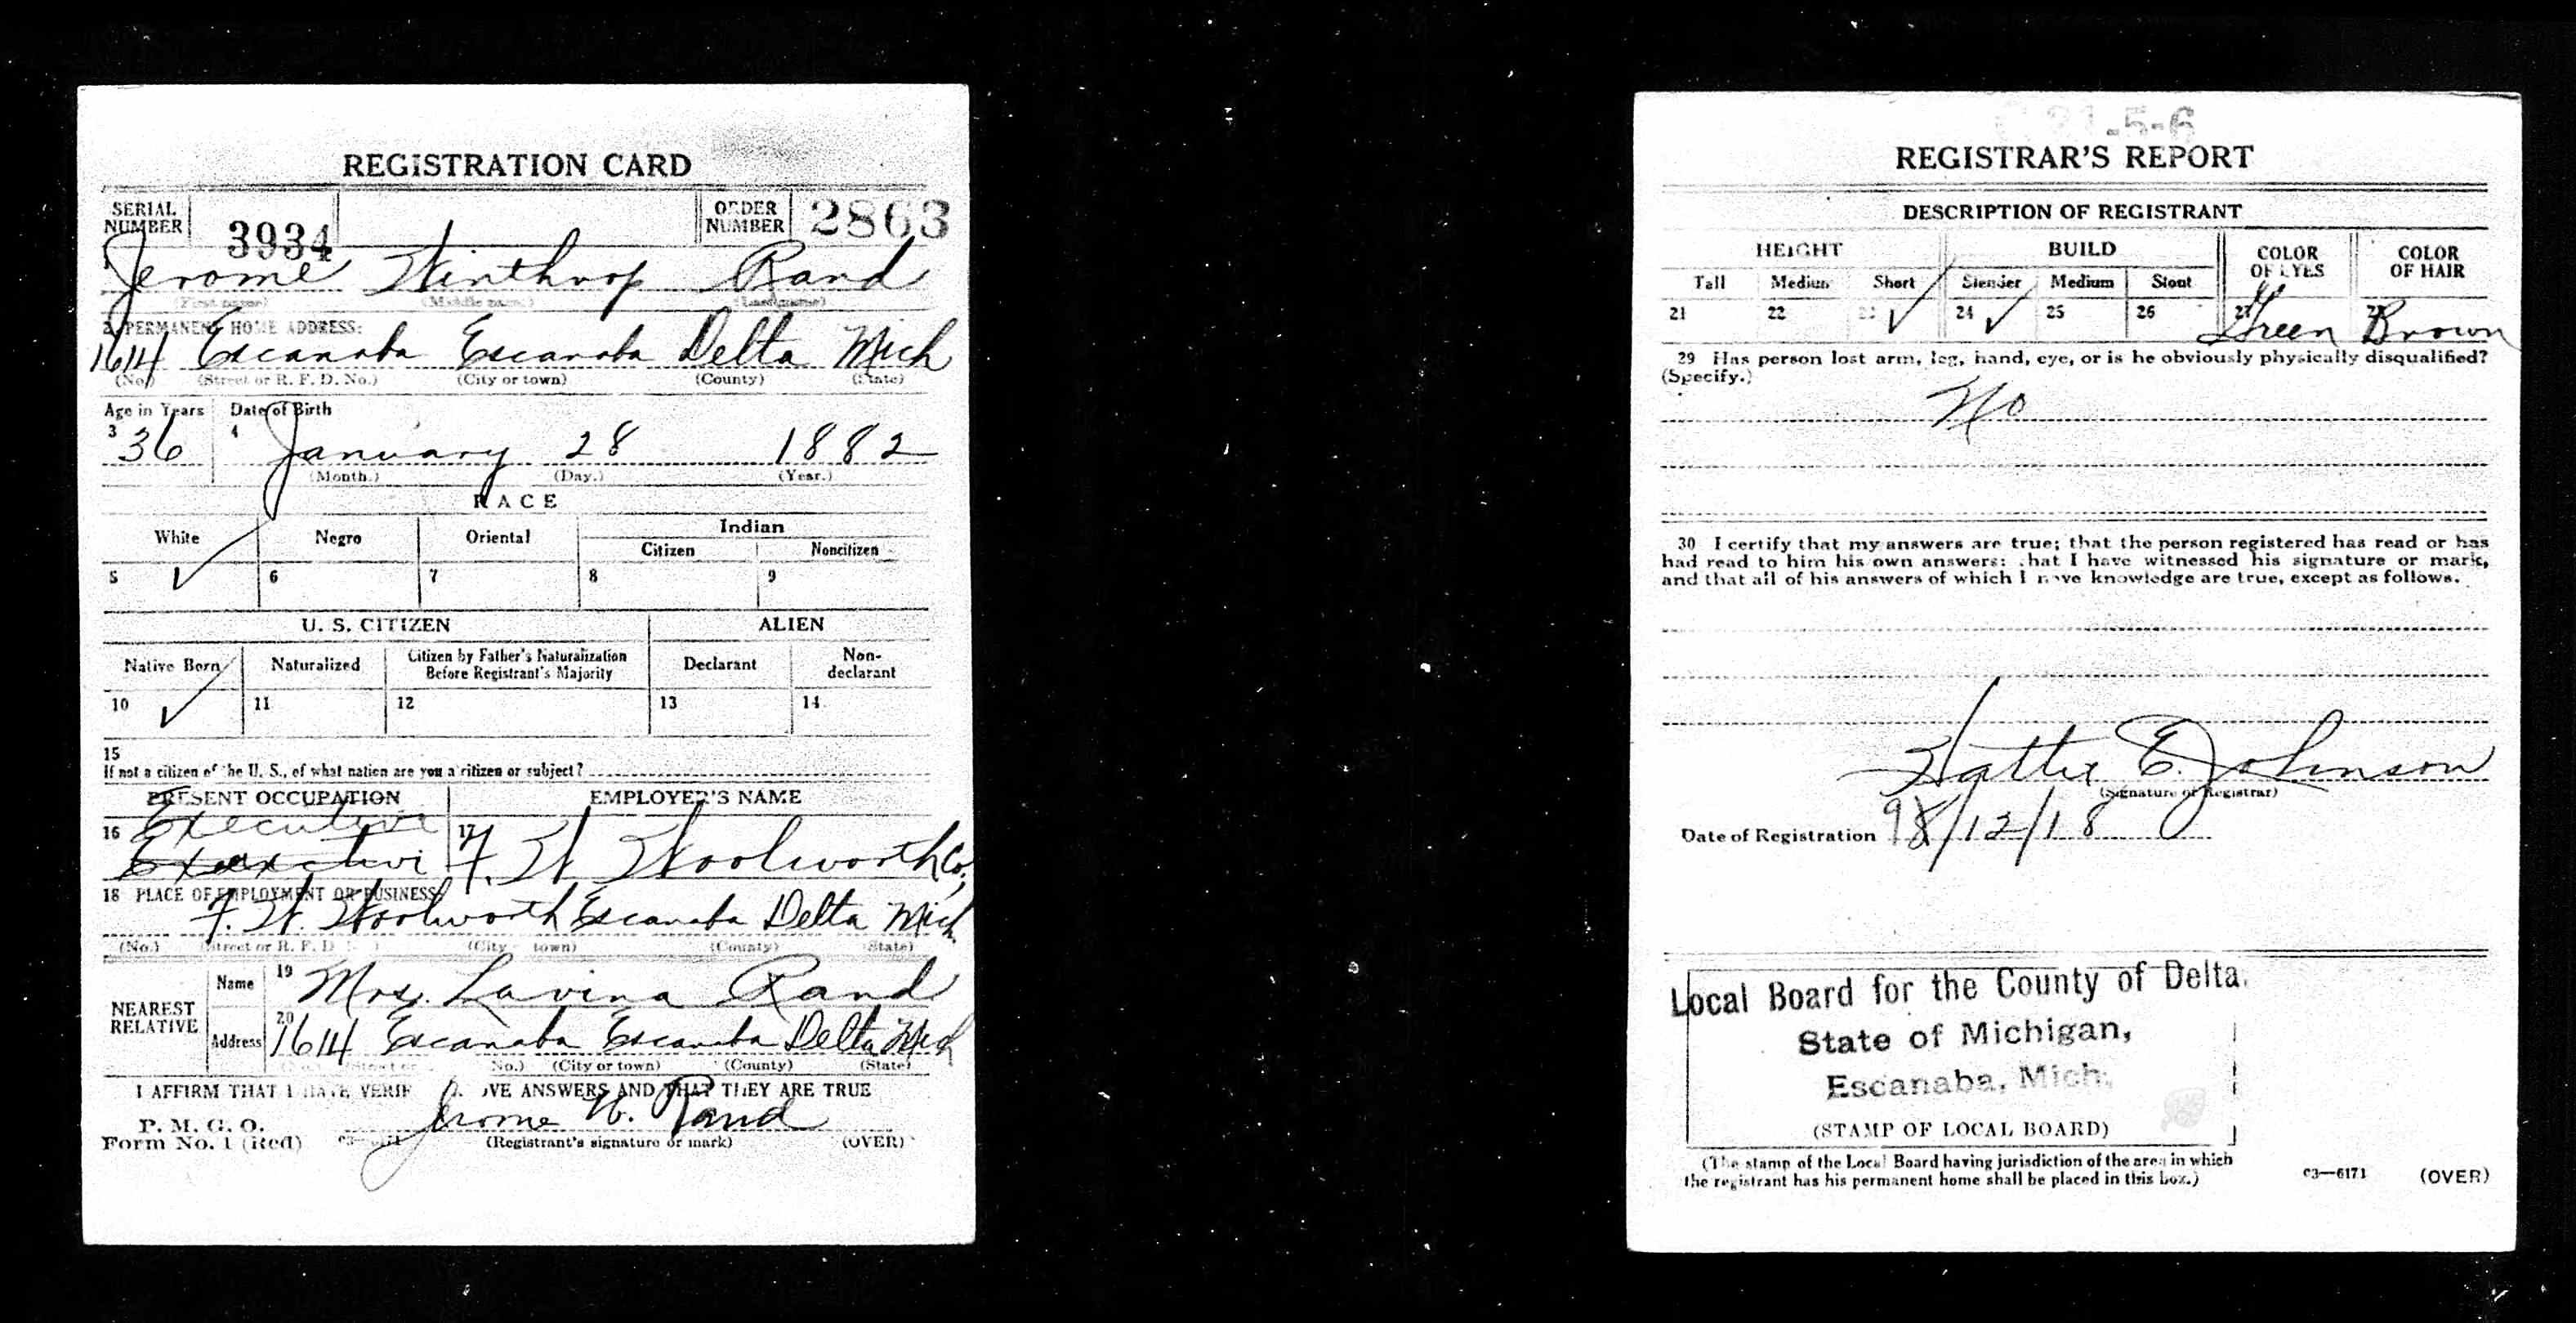 REGISTRATION CARD
SERIAL NUMBER 3934 ORDER NUMBER 2863
1 Jerome Winthrop Rand
(First name) (Middle name) (Last name)
2 PERMANENT HOME ADDRESS:
1614 Escanaba Escanaba Delta Mich
(No.) (Street or R. F. D. No.) (City or town) (County) (State)
Age in Years Date of Birth
3 36 4 January 28 1882
(Month.) (Day.) (Year.)
RACE
White Negro Oriental Indian
Citizen Noncitizen
5 ✓ 6 7 8 9
U. S. CITIZEN ALIEN
Native Born Naturalized Citizen by Father's Naturalization Before Registrant's Majority Declarant Non-declarant
10 ✓ 11 12 13 14
15
If not a citizen of the U. S., of what nation are you a citizen or subject?
PRESENT OCCUPATION EMPLOYER'S NAME
16 Executive 17 F. W. Woolworth Co.,
18 PLACE OF EMPLOYMENT OR BUSINESS
F. W. Woolworth Escanaba Delta Mich
(No.) (Street or R. F. D. No.) (City or town) (County) (State)
NEAREST RELATIVE
Name 19 Mrs. Lavina Rand
Address 20 1614 Escanaba Escanaba Delta Mich
(No.) (City or town) (County) (State)
I AFFIRM THAT I HAVE VERIF OVE ANSWERS AND THAT THEY ARE TRUE
P. M. G. O.
Form No. 1 (Red)
Jerome W. Rand
(Registrant's signature or mark) (OVER)
-5-6
REGISTRAR'S REPORT
DESCRIPTION OF REGISTRANT
HEIGHT BUILD COLOR OF EYES COLOR OF HAIR
Tall Medium Short Slender Medium Stout
21 22 23 ✓ 24 ✓ 25 26 27 Green 28 Brown
29 Has person lost arm, leg, hand, eye, or is he obviously physically disqualified?
(Specify.)
No
30 I certify that my answers are true; that the person registered has read or has
had read to him his own answers; that I have witnessed his signature or mark,
and that all of his answers of which I have knowledge are true, except as follows.
Hattie E. Johnson
(Signature of Registrar)
Date of Registration 9/12/18
Local Board for the County of Delta.
State of Michigan,
Escanaba, Mich.
(STAMP OF LOCAL BOARD)
(The stamp of the Local Board having jurisdiction of the area in which
the registrant has his permanent home shall be placed in this box.)
c3—6171 (OVER)